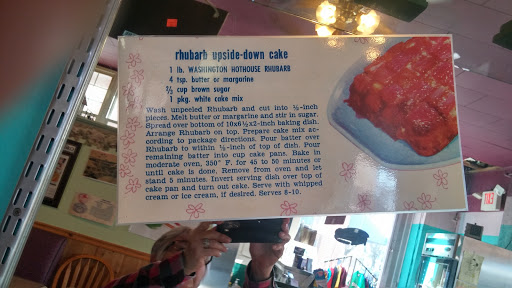 rhubarb upside-down cake
1 lb. WASHINGTON HOTHOUSE RHUBARB
4 tsp. butter or margarine
⅔ cup brown sugar
1 pkg. white cake mix
Wash unpeeled Rhubarb and cut into ½-inch
pieces. Melt butter or margarine and stir in sugar.
Spread over bottom of 10x6½x2-inch baking dish.
Arrange Rhubarb on top. Prepare cake mix ac-
cording to package directions. Pour batter over
Rhubarb to within ½-inch of top of dish. Pour
remaining batter into cup cake pans. Bake in
moderate oven, 350° F. for 45 to 50 minutes or
until cake is done. Remove from oven and let
stand 5 minutes. Invert serving dish over top of
cake pan and turn out cake. Serve with whipped
cream or ice cream, if desired. Serves 8-10.